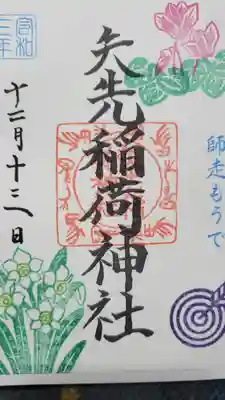 師走もうで
矢先稲荷神社
令和
三年
十二月十三日